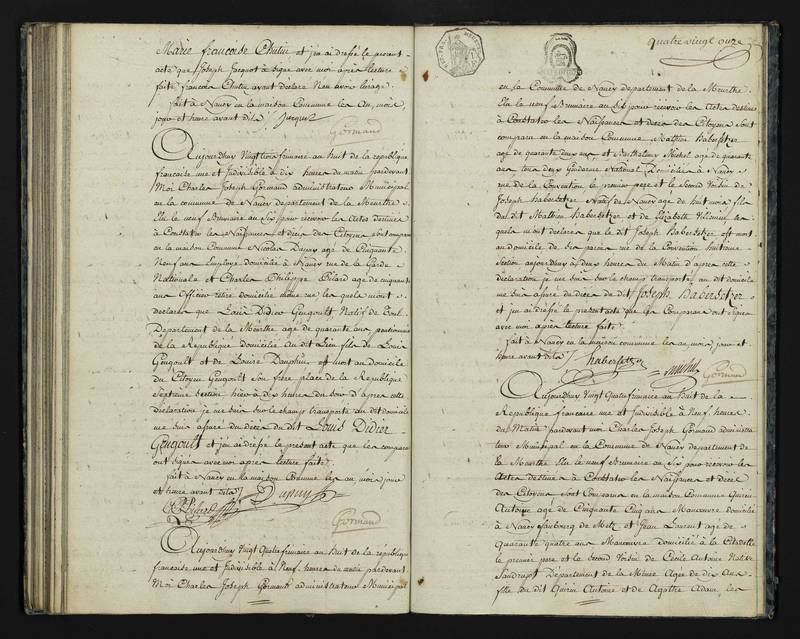 Marie françoise Chatin et j'ai dressé le présent
acte que Joseph Jacquot a signé avec moi après lecture
faite françois Chatin ayant déclaré n'en avoir l'usage
fait à Nancy en la maison Commune les an, mois
jour et heure avant dits Jacquot
Gormand
Aujourdhuy Vingt trois frimaire au huit de la republique
francaise une et Indivisible à dix heures du matin pardevant
Moi Charles Joseph Gormand administrateur Municipal
en la commune de Nancy departement de la Meurthe
Elu le neuf Brumaire an Six pour recevoir les actes destinés
à Constater les Naissances et décès des Citoyens sont comparus
en la maison Commune Nicolas age de Cinquante
Neuf ans Employé domicilié à Nancy rue de la Garde
Nationale et Charles Philippe Pilard age de cinquante
ans Officier retiré domicilié même rue les quels m'ont
déclaré que Louis Didier Gengoult, Natif de Toul
Departement de la Meurthe age de quarante ans pensionnaire
de la Republique domicilié au dit Lieu fils de Louis
Gengoult et de Louise Dauphin est mort au domicile
du Citoyen Gengoult son frere place de la Republique
Septieme Section hier à dix heures du soir d'après cette
déclaration je me suis sur le champ transporté au dit domicile
me suis assuré du décès du dit Louis Didier
Gengoult et j'ai dressé le present acte que les comparans
ont signés avec moi après lecture faite
fait à Nancy en la maison Commune les an mois jour
et heure avant dits
Pilard
Gormand
Aujourdhuy Vingt Quatre frimaire au huit de la republique
francaise une et Indivisible à Neuf heures du matin pardevant
Moi Charles Joseph Gormand administrateur Municipal
Quatre vingt onze
en la Commune de Nancy departement de la Meurthe
Elu le neuf Brumaire an Six pour recevoir les Actes destinés
à Constater les Naissances et décès des Citoyens sont
comparu en la maison Commune Mathieu Habersetzer
age de quarante deux ans, et Barthelemy Michel age de quarante
ans tous deux Gendarme National Domiciliés à Nancy
rue de la Convention le premier pere et le Second Voisin de
Joseph habersetzer Natif de Nancy age de huit mois fils
du dit Mathieu habersetzer et de Elizabeth les
quels m'ont déclarés que le dit Joseph habersetzer est mort
au domicile de ses pareins rue de la Convention huitieme
Section aujourdhuy à deux heures du Matin d'après cette
déclaration je me suis sur le champ transporté au dit domicile
me suis assuré du décès du dit Joseph Habersetzer
et j'ai dressé le present acte que les Comparans ont signés
avec moi après lecture faite
fait à Nancy en la maison commune les an, mois, jour et
heure avant dits habersetzer
Michel Gormand
Aujourdhuy Vingt Quatre frimaire au huit de la
Republique francaise une et Indivisible à Neuf heures
du Matin pardevant moi Charles Joseph Gormand administra
teur Municipal en la Commune de Nancy departement de
la Meurthe Elu le neuf Brumaire an Six pour recevoir les
Actes destinés à Constater les Naissances et décès
des Citoyens sont Comparus en la maison Commune Quirin
Antoine age de Cinquante Cinq ans Manoeuvre domicilié
à Nancy faubourg de Metz et Jean Laurent age de
Quarante quatre ans Manoeuvre Domicilié à la Citadelle
le premier pere et le Second Voisin de Cecile Antoine Native
Sandrupt Departement de la Meuse Agée de dix Ans
fille du dit Quirin Antoine et de Agathe Adam, les